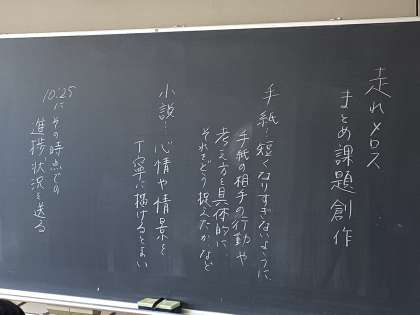 走れメロス
まとめ課題創作
手紙…短くなりすぎないように、
手紙の相手の行動や
考え方を具体的に
それをどう捉えたかなど
小説…心情や情景を
丁寧に描けるとよい
10:25に その時点での
進捗状況を送る